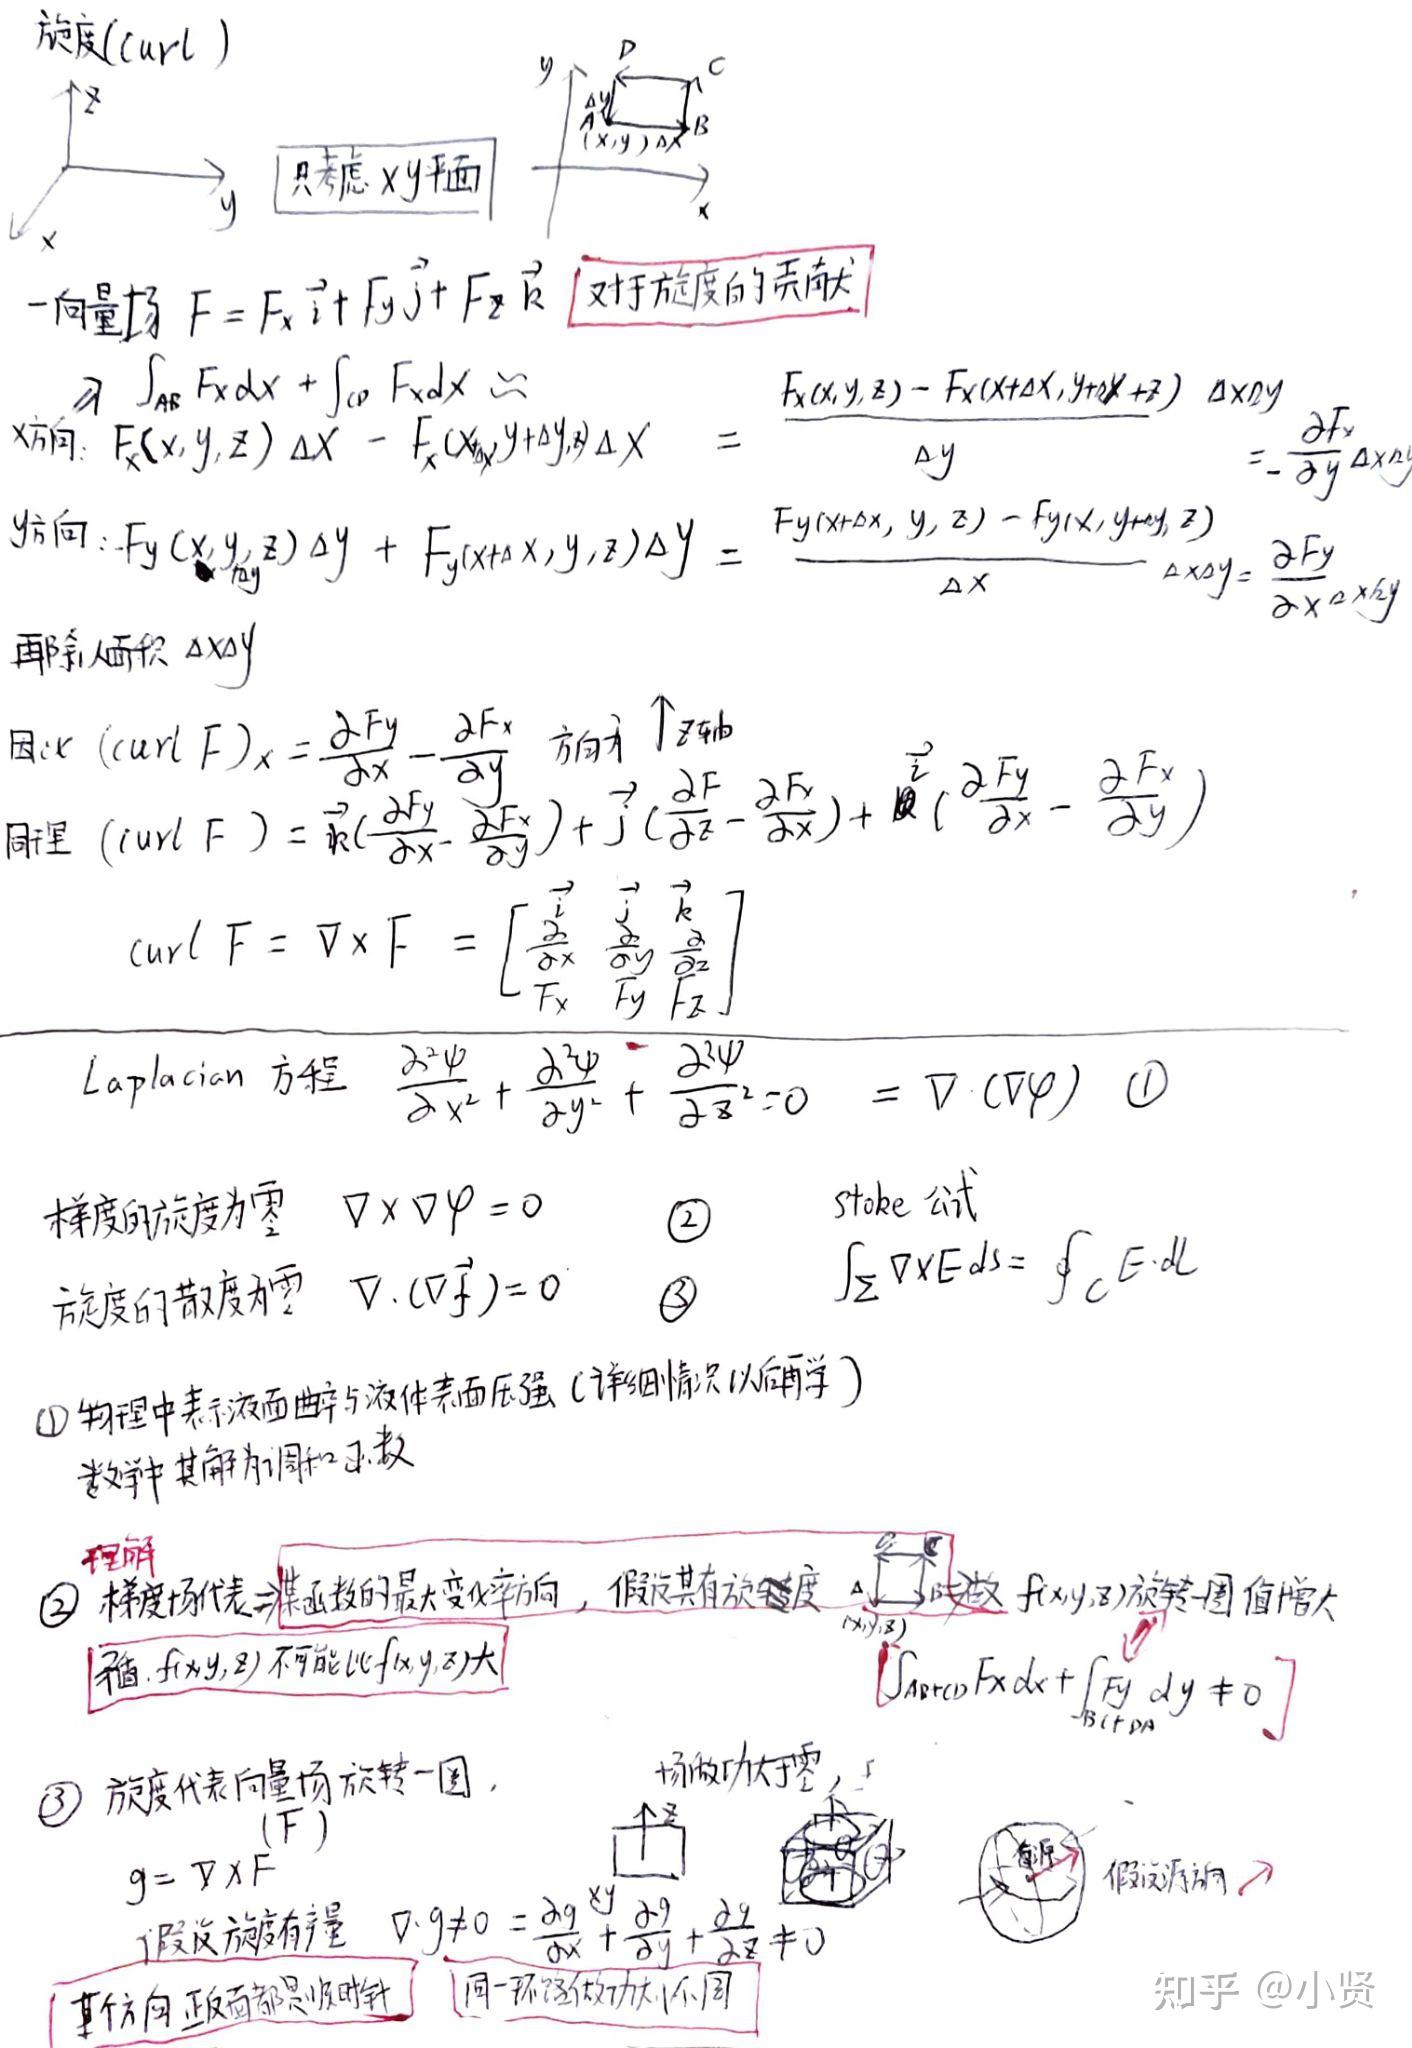 旋度(curl)
z
y
x
只考虑xy平面
y
D
C
Δy
A
B
(x,y) Δx
x
一向量场 F = Fx i + Fy j + Fz k
对于旋度的贡献
∫AB Fxdx + ∫CD Fxdx ≈
x方向: Fx(x,y,z) Δx - Fx(x+Δx,y+Δy,z) Δx = Fx(x,y,z) - Fx(x+Δx,y+Δy+z) / Δy ΔxΔy = - ∂Fx/∂y ΔxΔy
y方向: -Fy(x,y,z) Δy + Fy(x+Δx,y,z) Δy = Fy(x+Δx,y,z) - Fy(x,y+Δy,z) / Δx ΔxΔy = ∂Fy/∂x ΔxΔy
再除以面积 ΔxΔy
因此 (curl F)x = ∂Fy/∂x - ∂Fx/∂y 方向为 ↑z轴
同理 (curl F) = k(∂Fy/∂x - ∂Fx/∂y) + j(∂F/∂z - ∂Fx/∂x) + i(∂Fy/∂x - ∂Fx/∂y)
curl F = ∇×F = [ i j k
∂/∂x ∂/∂y ∂/∂z
Fx Fy Fz ]
Laplacian 方程 ∂²ψ/∂x² + ∂²ψ/∂y² + ∂²ψ/∂z² = 0 = ∇·(∇φ) ①
梯度的旋度为零 ∇×∇φ = 0 ②
旋度的散度为零 ∇·(∇f) = 0 ③
stoke 公式
∫Σ ∇×E ds = ∮C E·dL
① 物理中表示液面曲率与液体表面压强(详细情况以后再学)
数学中其解为调和函数
理解
② 梯度场代表⇒某函数的最大变化率方向, 假设其有旋度
A
B
(x,y,z)
f(x,y,z)旋转一圈值增大
矛盾. f(x,y,z)不可能比f(x,y,z)大
[∫AB+CD Fxdx + ∫BC+DA Fy dy ≠ 0]
③ 旋度代表向量场旋转一圈,
(F)
场做功大于零,
g = ∇×F
z
xy
有源
假设源方向 ↗
假设旋度有量 ∇·g≠0 = ∂g/∂x + ∂g/∂y + ∂g/∂z ≠ 0
某个方向正反面都是顺时针
同一环路做功大小不同
知乎 @小贤